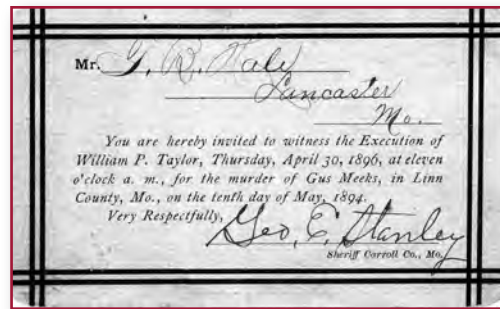 Mr. G. R. Hale
Lancaster
Mo.
You are hereby invited to witness the Execution of
William P. Taylor, Thursday, April 30, 1896, at eleven
o'clock a. m., for the murder of Gus Meeks, in Linn
County, Mo., on the tenth day of May, 1894.
Very Respectfully,
Geo. E. Stanley
Sheriff Carroll Co., Mo.